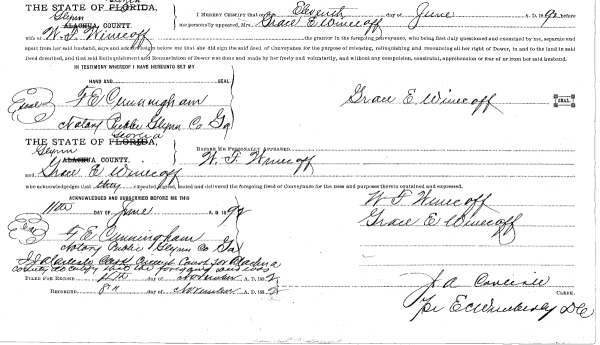 THE STATE OF FLORIDA,
Glynn
ALACHUA COUNTY.
I HEREBY CERTIFY that on the Eleventh day of June A. D. 1892 before
me personally appeared, Mrs. Grace E Winecoff
wife of W. F. Winecoff the grantor in the foregoing conveyance, who, being first duly questioned and examined by me, separate and
apart from her said husband, says and acknowledges before me that she did sign the said deed of Conveyance for the purpose of releasing, relinquishing and renouncing all her right of Dower, in and to the land in said
Deed described, and that said Relinquishment and Renunciation of Dower was done and made by her freely and voluntarily, and without any compulsion, constraint, apprehension or fear of or from her said husband.
IN TESTIMONY WHEREOF I HAVE HEREUNTO SET MY
HAND AND SEAL:
Seal
F E Cunningham
Notary Public Glynn Co Ga
Grace E. Winecoff
SEAL.
Georgia
THE STATE OF FLORIDA,
Glynn
ALACHUA COUNTY.
BEFORE ME PERSONALLY APPEARED W. F. Winecoff
and Grace E Winecoff
who acknowledges that they executed, signed, sealed and delivered the foregoing deed of Conveyance for the uses and purposes therein contained and expressed.
ACKNOWLEDGED AND SUBSCRIBED BEFORE ME THIS
11th DAY OF June A. D. 1892
W F Winecoff
Grace E Winecoff
F. E. Cunningham
Notary Public Glynn Co Ga
I J A Carlisle Clerk Circuit Court for Alachua
county do certify that the foregoing and was
FILED FOR RECORD day of November A. D. 1892
RECORDED 8" day of November 1892
J A Carlisle
CLERK.
pr E C Wimberly D C